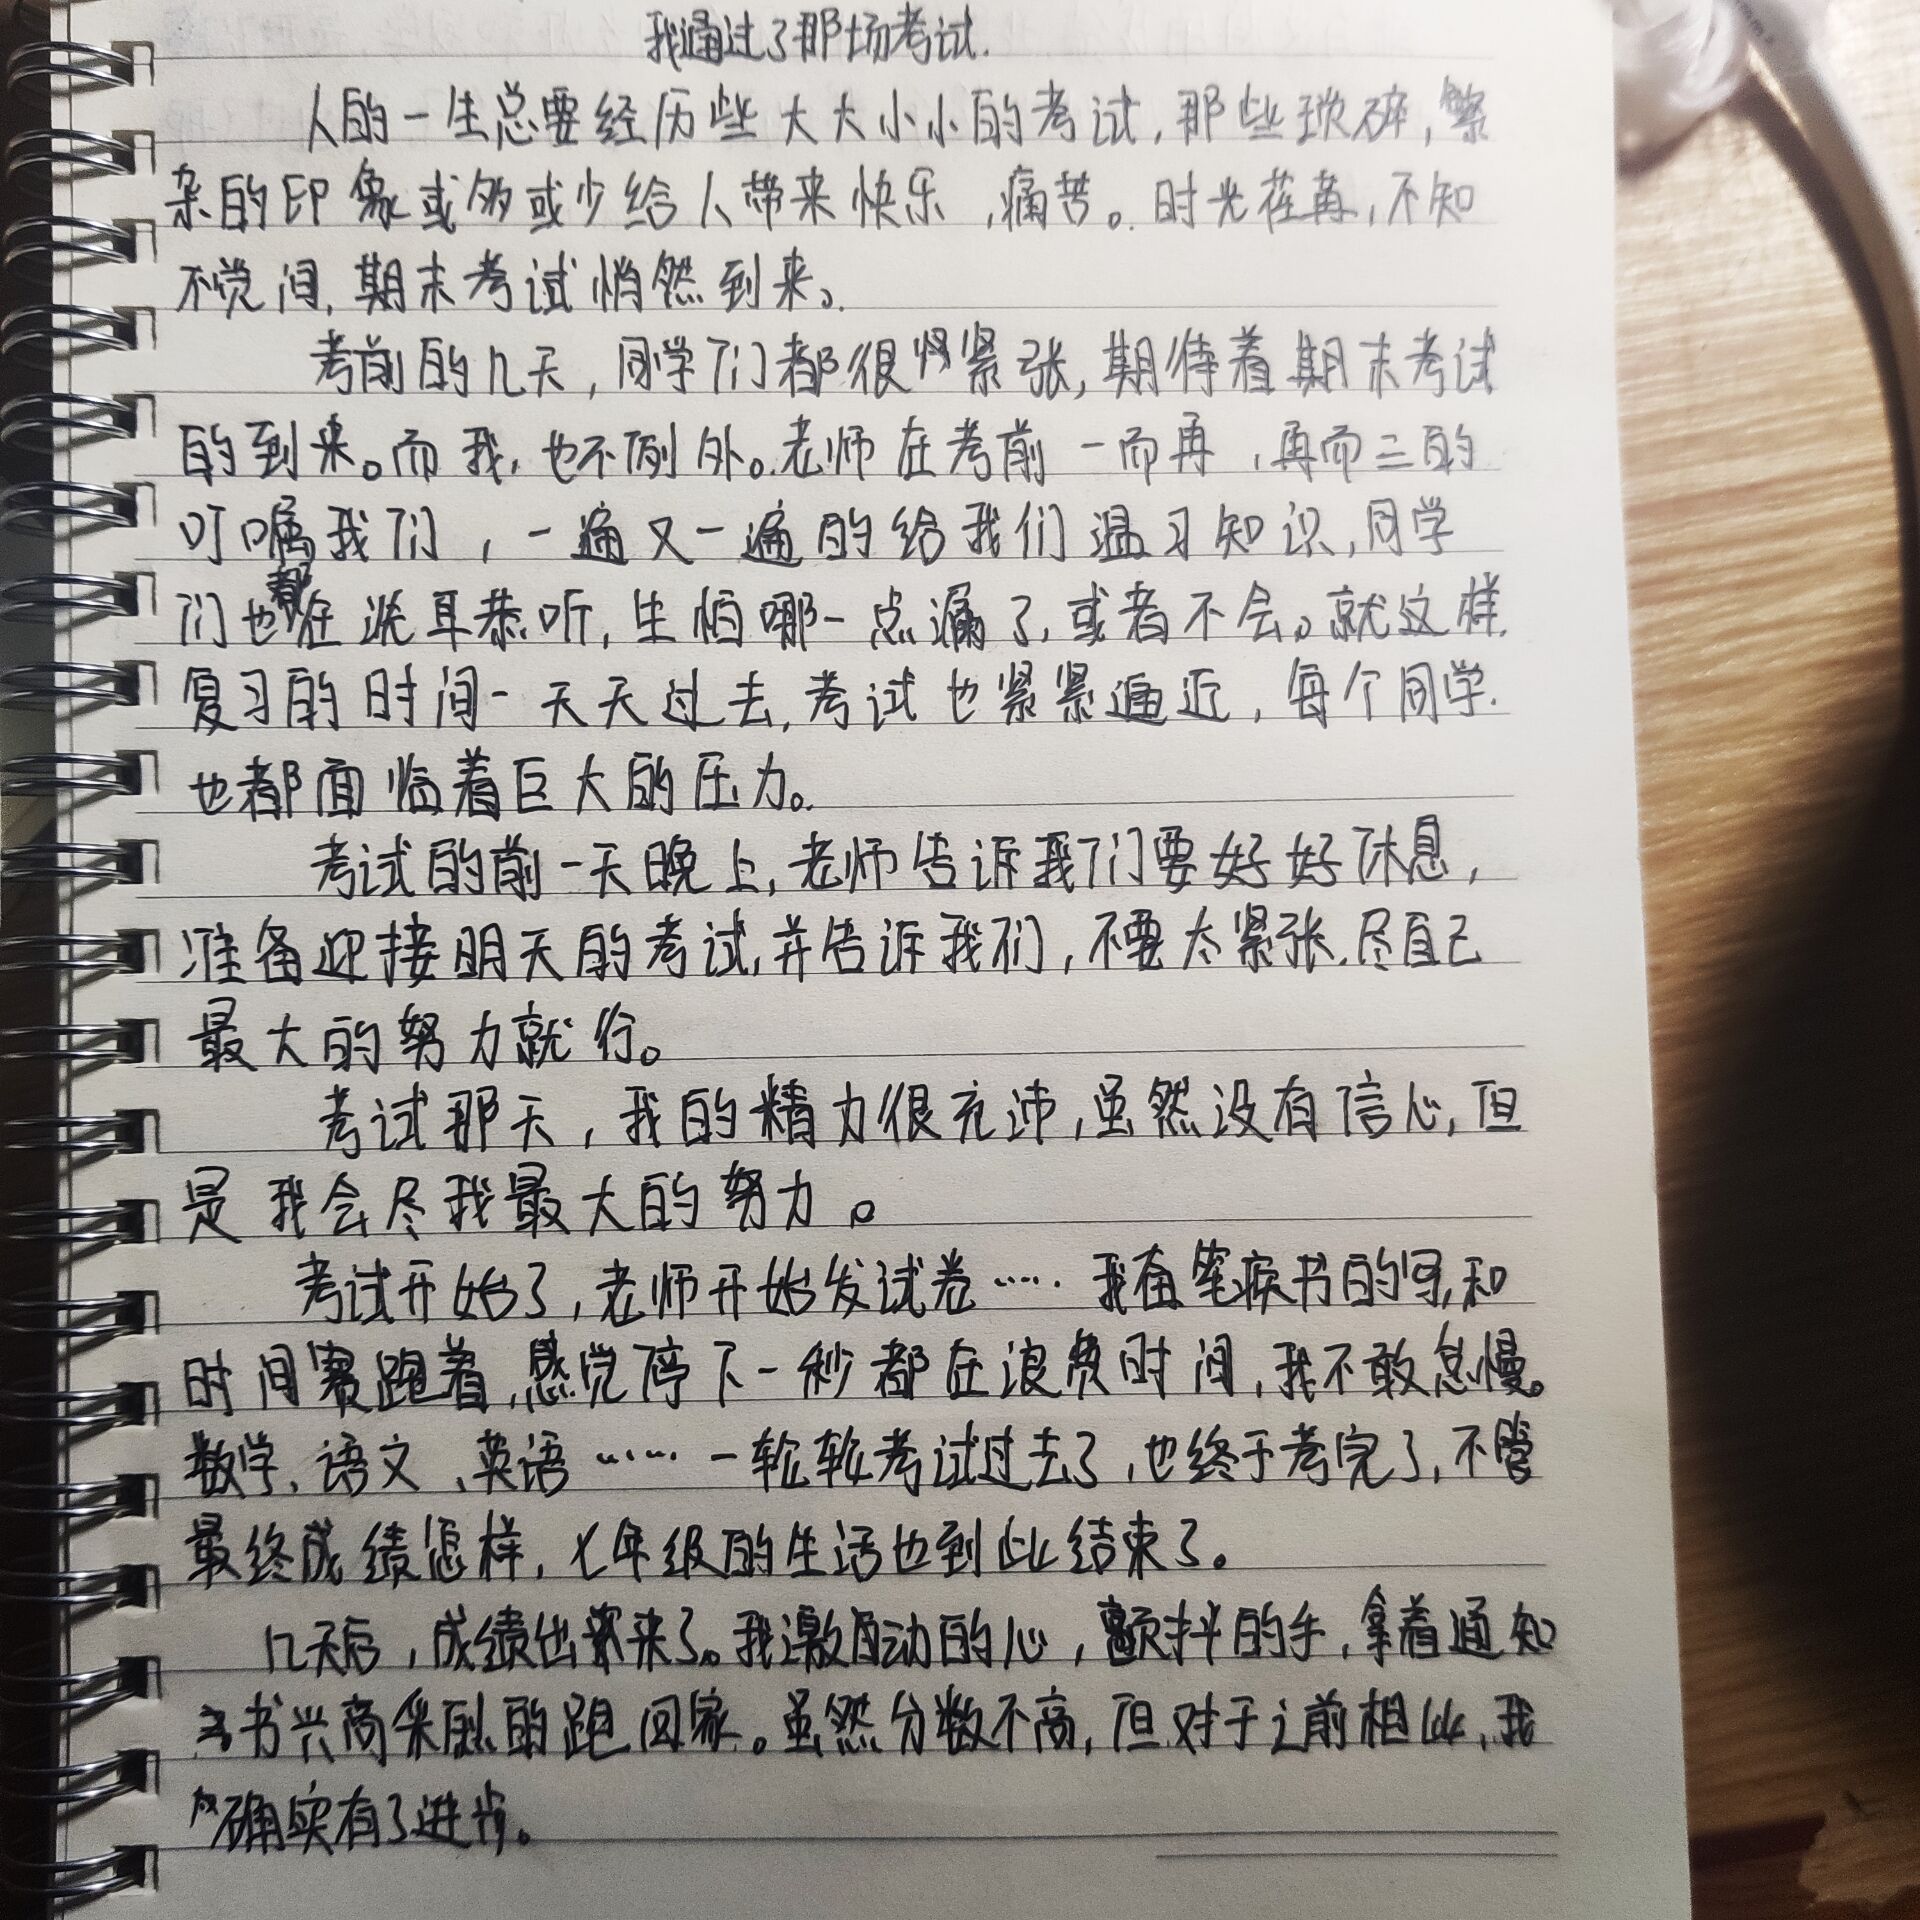 我通过了那场考试.
人的一生总要经历些大大小小的考试,那些琐碎,繁
杂的印象或多或少给人带来快乐,痛苦。时光荏苒,不知
不觉间,期末考试悄然到来。
考前的几天,同学们都很紧张,期待着期末考试
的到来。而我,也不例外。老师在考前一而再,再而三的
叮嘱我们,一遍又一遍的给我们温习知识,同学
们也都在洗耳恭听,生怕哪一点漏了,或者不会。就这样,
复习的时间一天天过去,考试也紧紧逼近,每个同学
也都面临着巨大的压力。
考试的前一天晚上,老师告诉我们要好好休息,
准备迎接明天的考试,并告诉我们,不要太紧张.尽自己
最大的努力就行。
考试那天,我的精力很充沛,虽然没有信心,但
是我会尽我最大的努力。
考试开始了,老师开始发试卷……我奋笔疾书的写,和
时间赛跑着,感觉停下一秒都在浪费时间,我不敢怠慢。
数学、语文、英语……一轮轮考试过去了,也终于考完了,不管
最终成绩怎样,七年级的生活也到此结束了。
几天后,成绩出来了。我激动的心,颤抖的手,拿着通知
书兴高采烈的跑回家。虽然分数不高,但对于之前相比,我
确实有了进步。